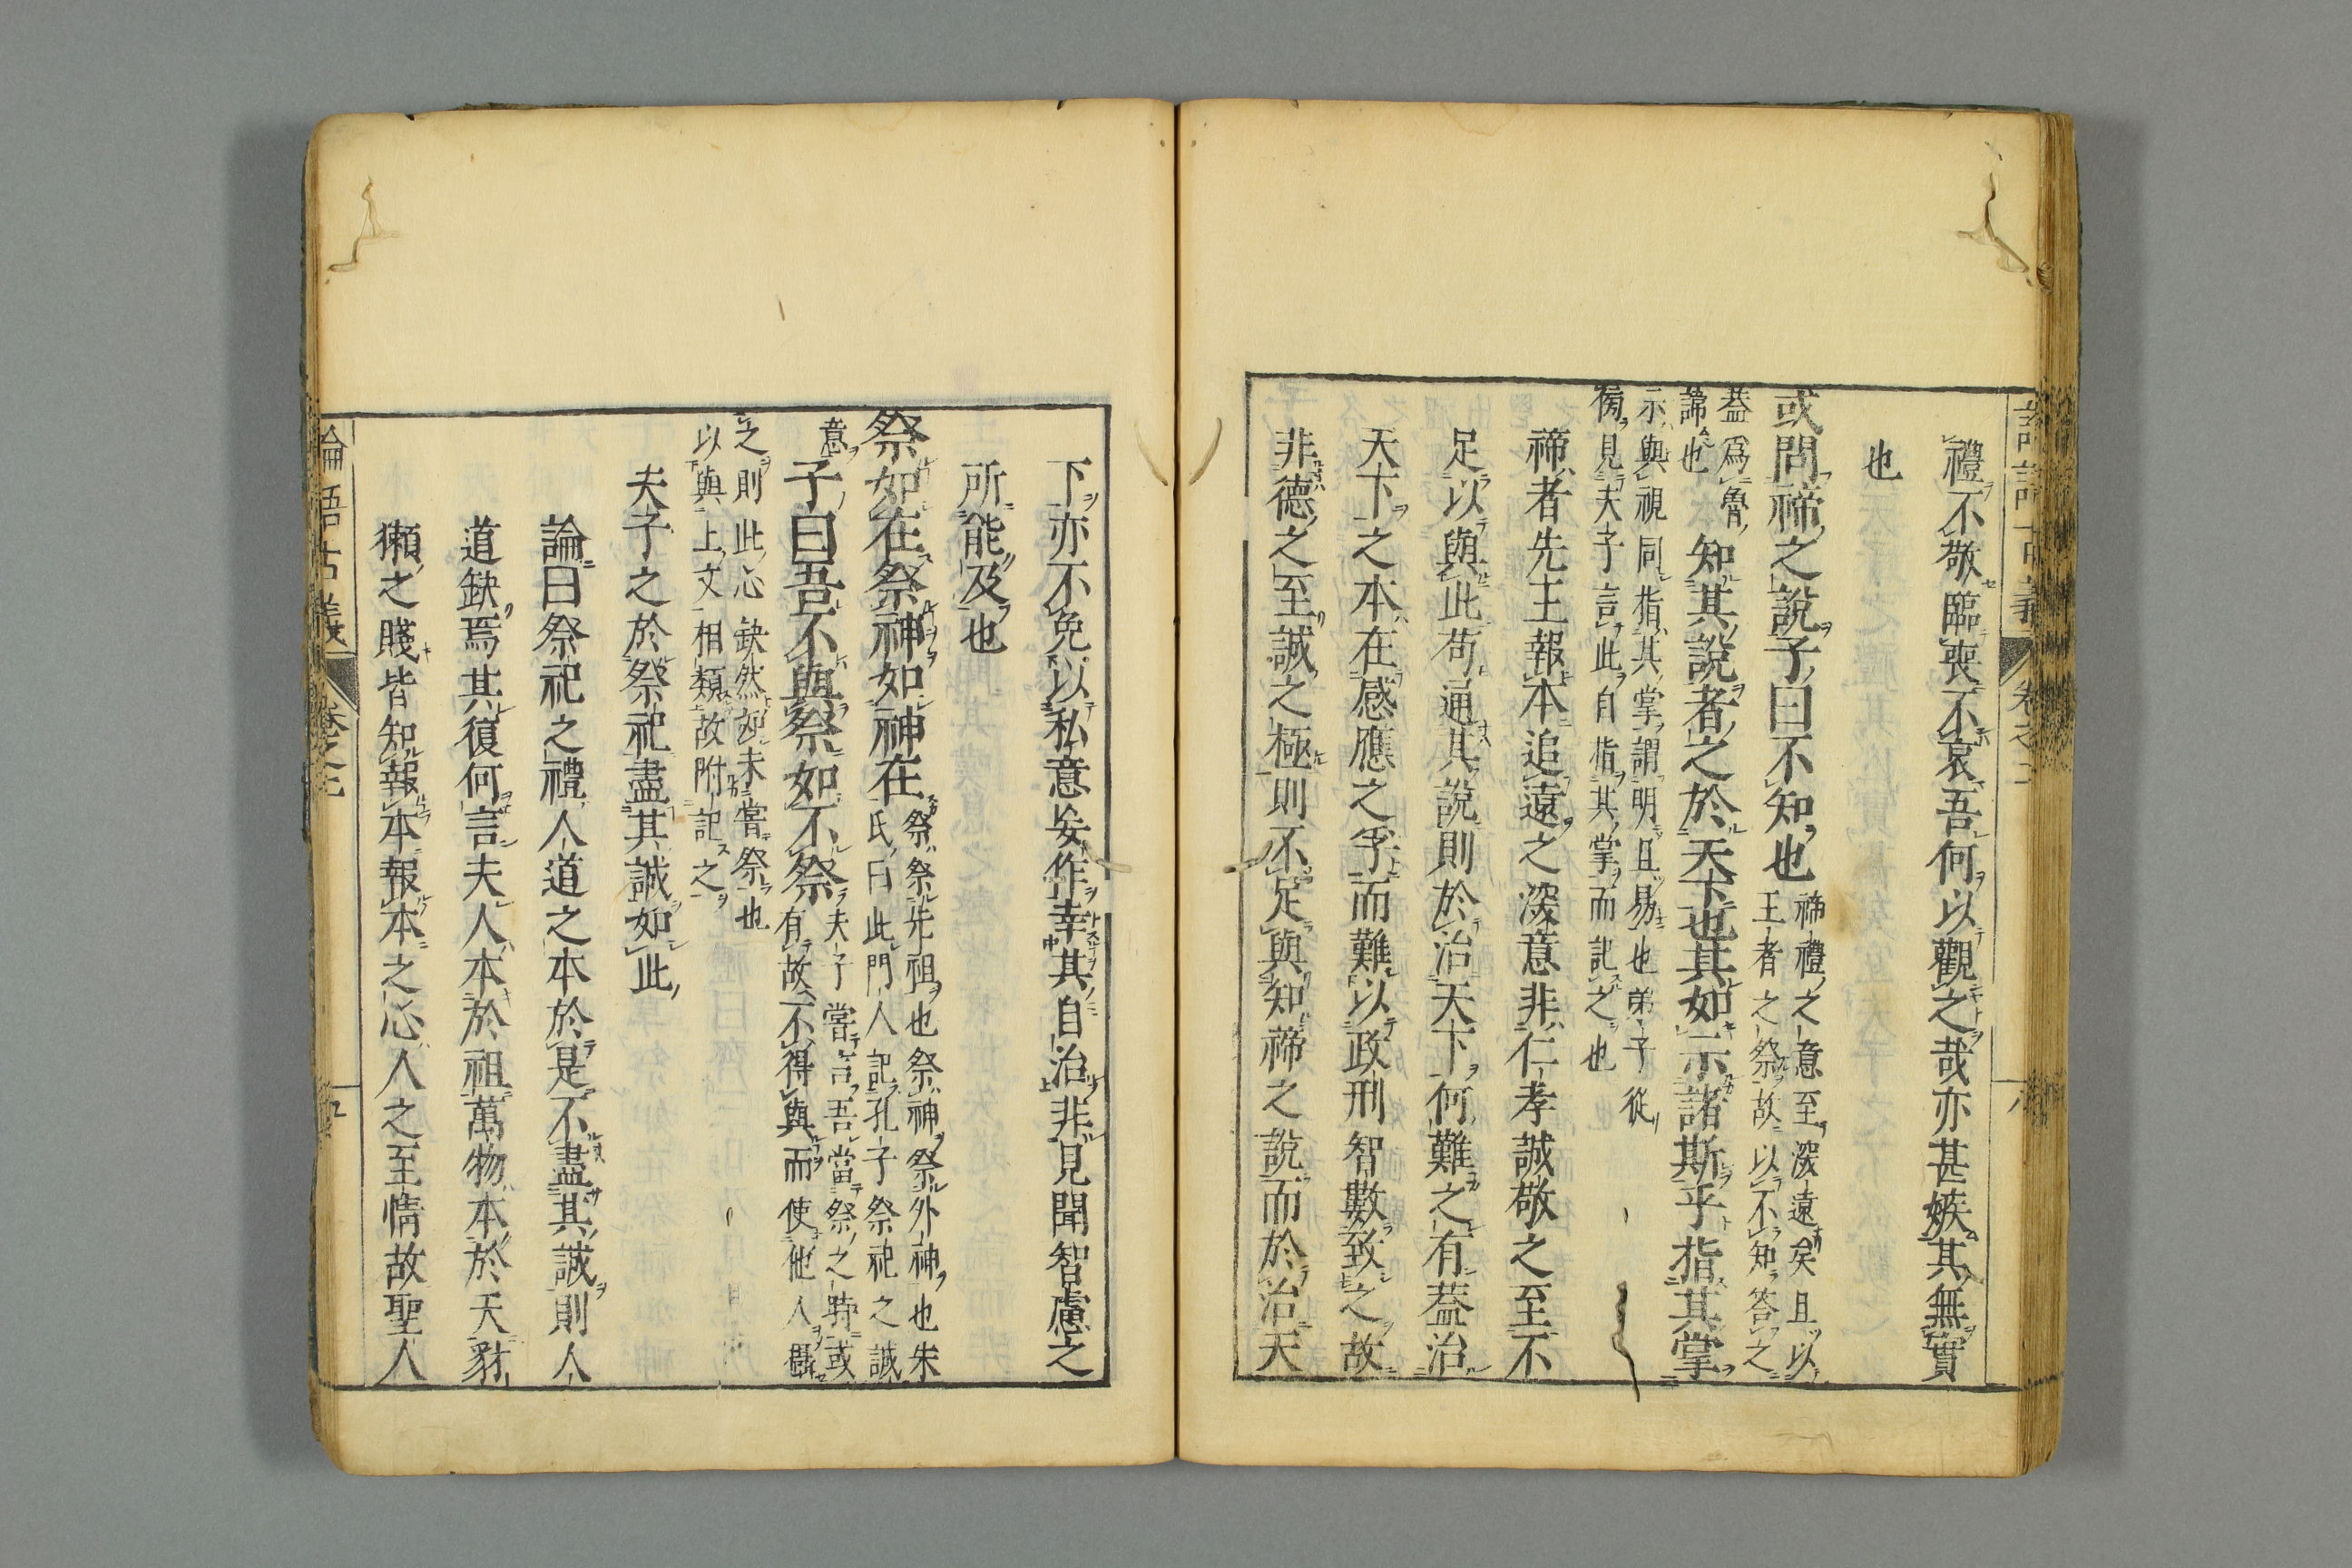 禮不敬臨喪不哀吾何以觀之哉亦甚嫉其無實
也
或問禘之說子曰不知也
禘禮之意至深遠矣且以
王者之祭故以不知答之
蓋爲魯
諱也
知其說者之於天下也其如示諸斯乎指其掌
示與視同指其掌謂明且易也弟子從
傍見夫子言此自指其掌而記之也
禘者先王報本追遠之深意非仁孝誠敬之至不
足以與此苟通其說則於治天下何難之有蓋治
天下之本在感應之孚而難以政刑智數致之故
非德之至誠之極則不足與知禘之說而於治天
下亦不免以私意妄作幸其自治非見聞智慮之
所能及也
祭如在祭神如神在
祭祭先祖也祭神祭外神也朱
氏曰此門人記孔子祭祀之誠
意
子曰吾不與祭如不祭
夫子嘗言吾當祭之時或
有故不得與而使他人攝
之則此心缺然如未嘗祭也
以與上文相類故附記之
夫子之於祭祀盡其誠如此
論曰祭祀之禮人道之本於是不盡其誠則人
道缺焉其復何言夫人本於祖萬物本於天豺
獺之賤皆知報本報本之心人之至情故聖人
論語古義
卷之二